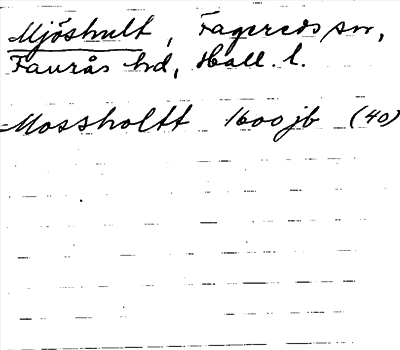 Mjöshult, Fagereds sn,
Faurås hd, Hall. l.
Mossholtt 1600 jb (40)